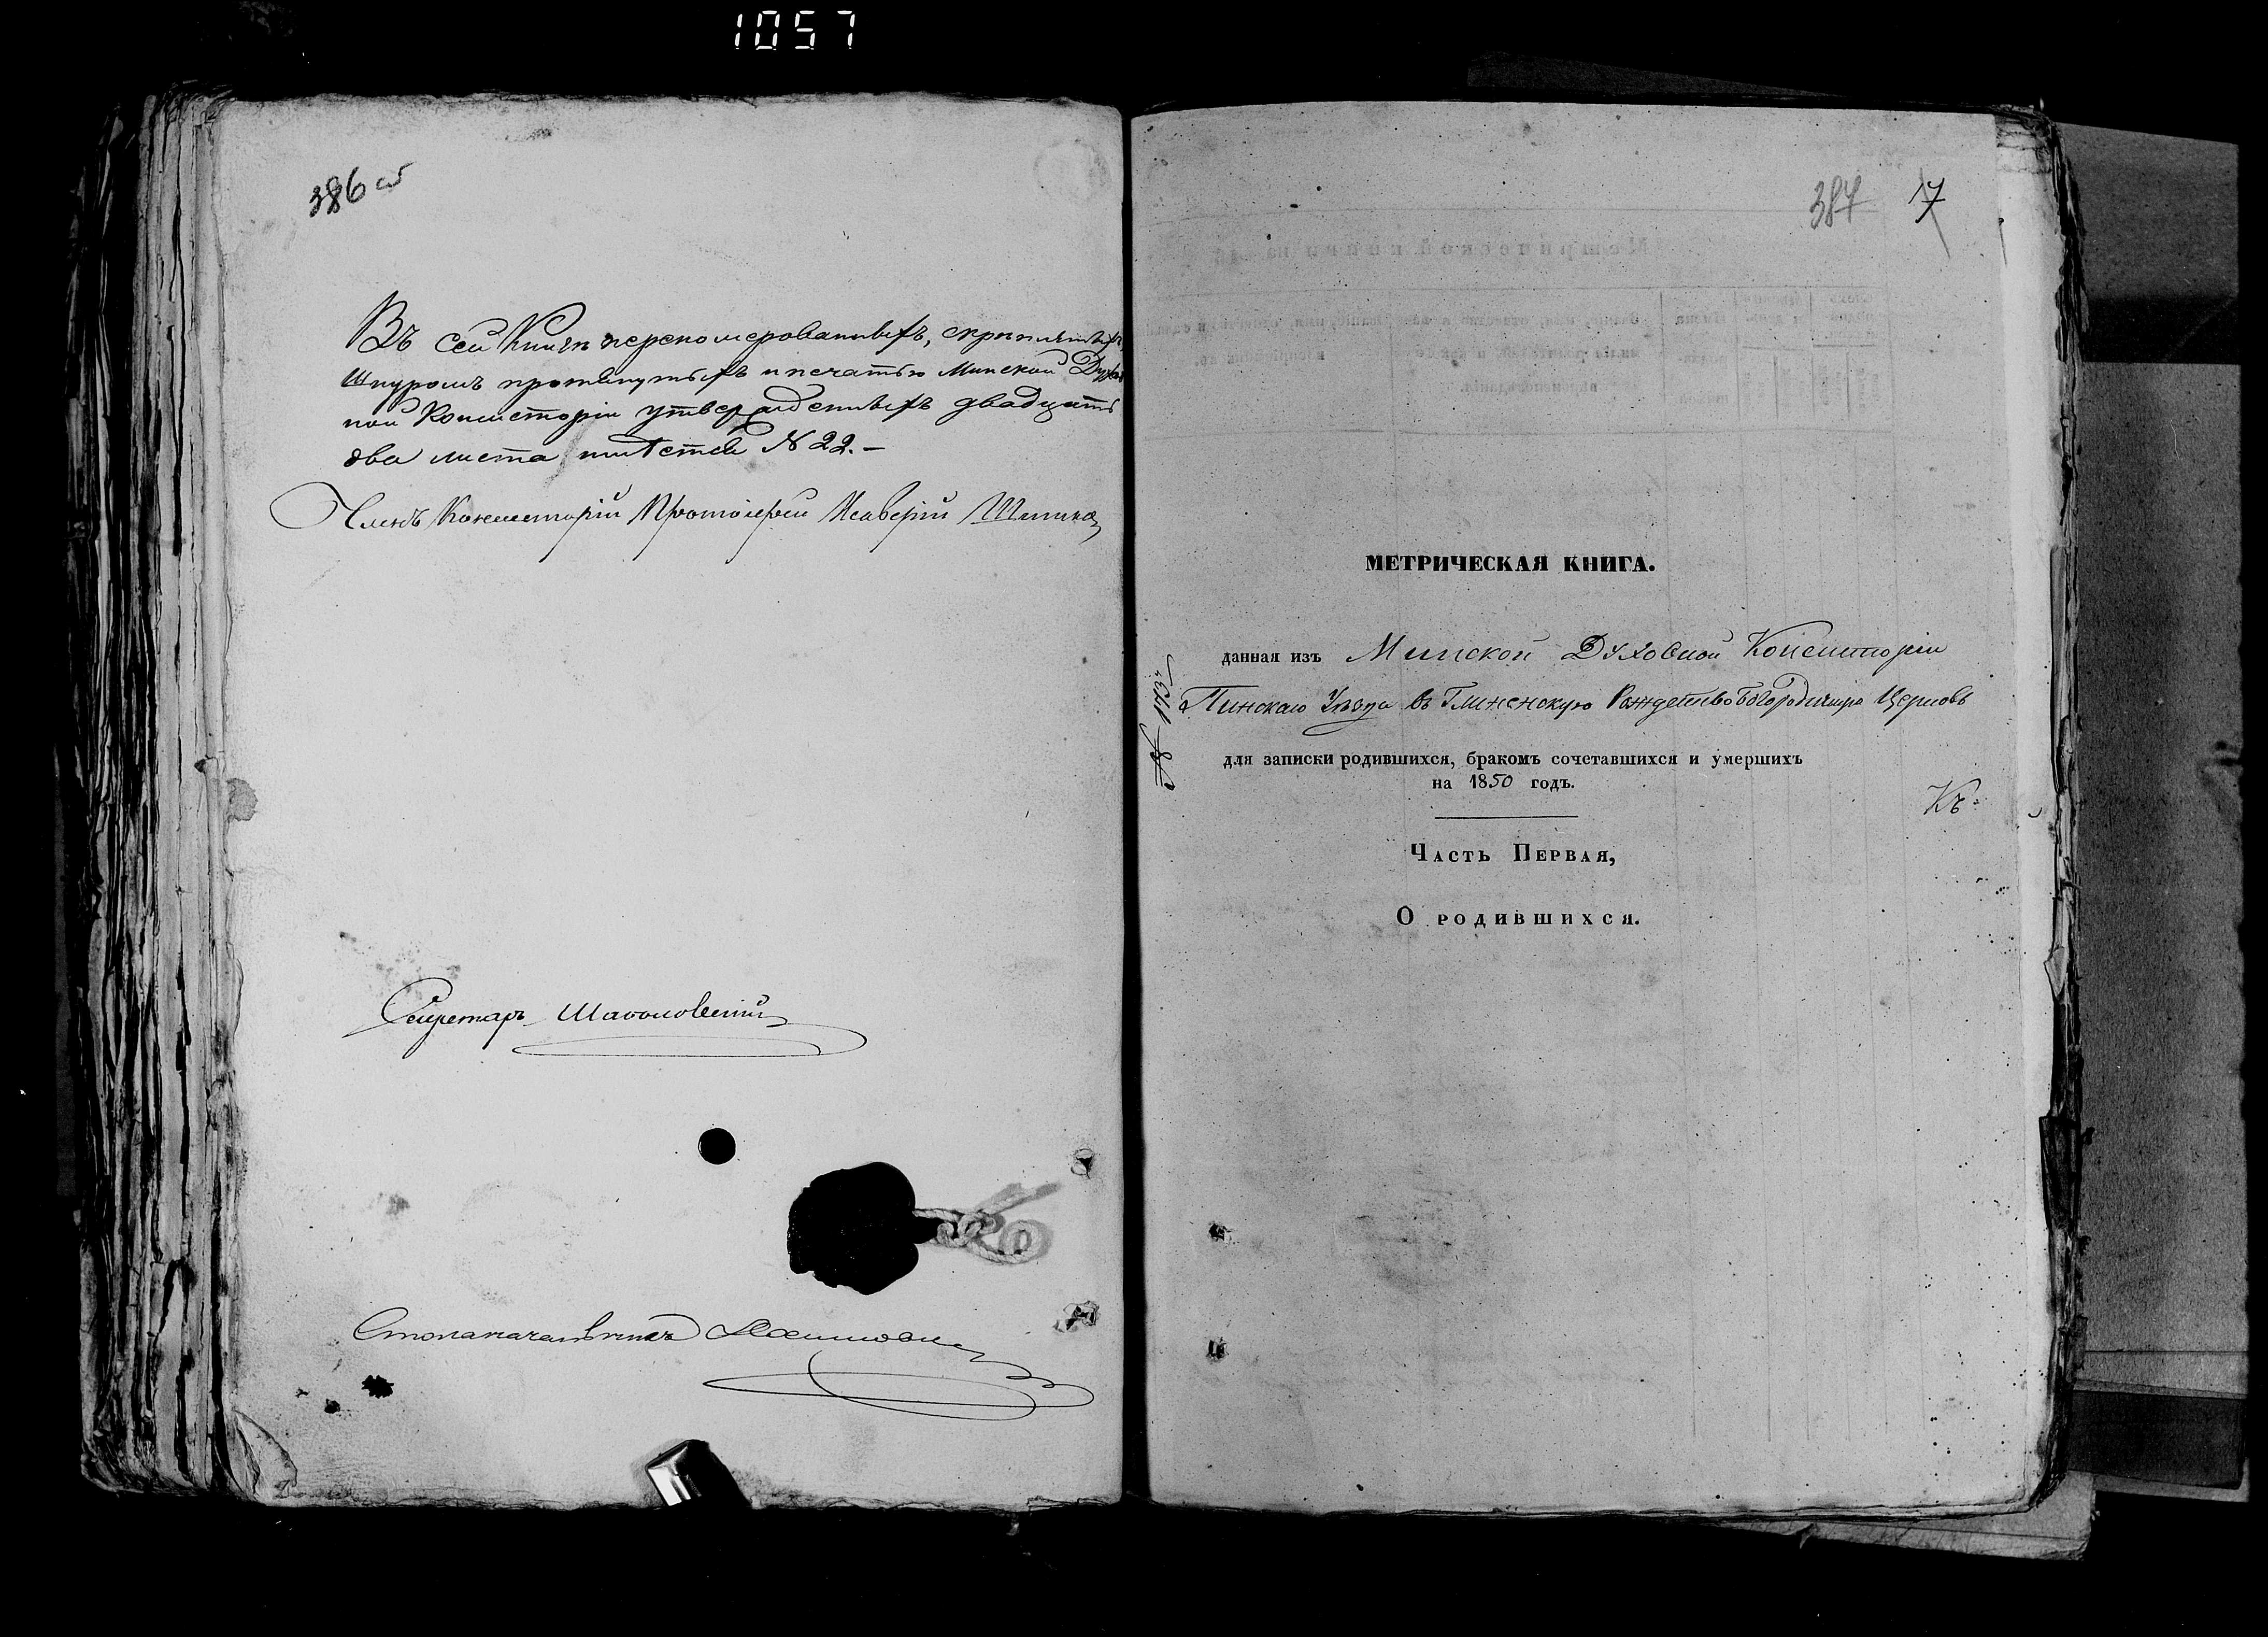 1057
386 об
Въ сей Книги перепомерованныхъ, скрепленныхъ,
шнуромъ протянутыхъ и печатью Минской Духов
ной Консисторіи утвержденныхъ двадцать
два листа N 22. —
Членъ Консисторіи Протоіерей
Секретарь
Столоначальникъ
387 7
МЕТРИЧЕСКАЯ КНИГА.
данная изъ Минской Духовной Консисторіи
Пинскаго Уѣзда въ Глиненскую Рождество Богородичную Церковь
для записки родившихся, бракомъ сочетавшихся и умершихъ
на 1850 годъ.
Часть Первая,
О родившихся.